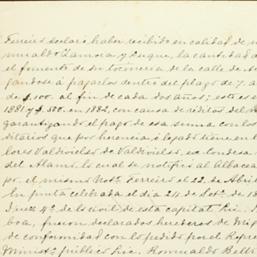 Ferreiro declaró haber recibido en calidad de m
Romualdo Zamora y Duque, la cantidad d
al fomento de su locinería de la calle de
gándose á pagarlos dentro del plazo de 7. a
de $ 500. al fin de cada dos años; esto es
1881 y $ 500. en 1882, con causa de réditos del
garantizando el pago de esa suma con los
ditarios que por herencia ó legado tiene en
lores Valdovielso de Valdovielso, en
del Alamo, lo cual se notificó al Albacea
por el mismo Not.º Ferreiro el 22 de Abri
la junta celebrada el día 24 de Set.e de 18
Juez 4.º de lo civil de esta capital Lic.
boa, fueron declarados herederos de
de conformidad con lo pedido por el Repre
Minist.º público Lic. Romualdo Beltr